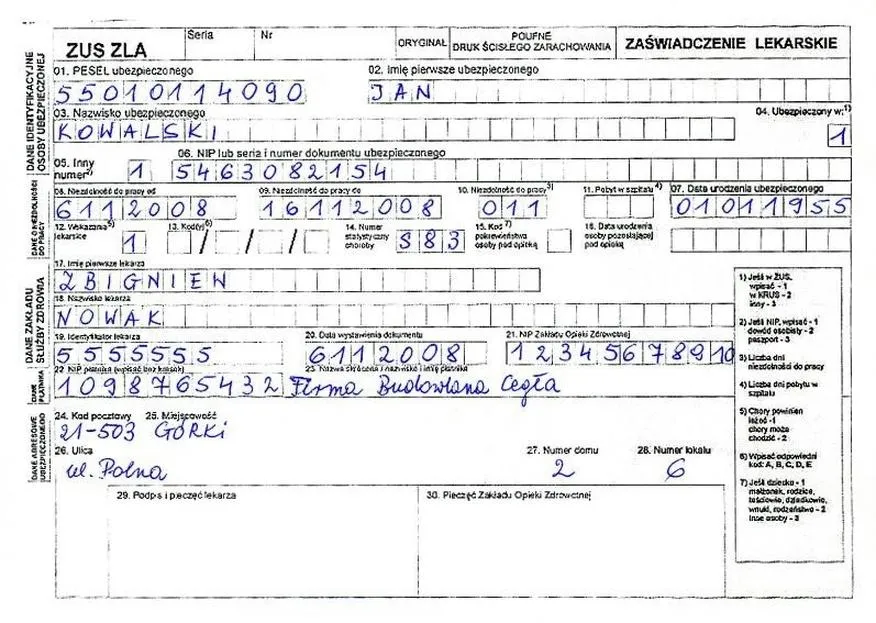 ZUS ZLA
Seria
Nr
ORYGINAŁ
POUFNE
DRUK ŚCISŁEGO ZARACHOWANIA
ZAŚWIADCZENIE LEKARSKIE
DANE IDENTYFIKACYJNE
OSOBY UBEZPIECZONEJ
01. PESEL ubezpieczonego
02. Imię pierwsze ubezpieczonego
55010114090
JAN
03. Nazwisko ubezpieczonego
04. Ubezpieczony w:1)
KOWALSKI
1
05. Inny
numer2)
1
06. NIP lub seria i numer dokumentu ubezpieczonego
5463082154
DANE O NIEZDOLNOŚCI
DO PRACY
08. Niezdolność do pracy od
09. Niezdolność do pracy do
10. Niezdolność do pracy3)
11. Pobyt w szpitalu4)
07. Data urodzenia ubezpieczonego
6112008
16112008
011
01011955
12. Wskazania5)
lekarskie
1
13. Kod(y)6)
/ / /
14. Numer
statystyczny
choroby
S83
15. Kod7)
pokrewieństwa
osoby pod opieką
16. Data urodzenia
osoby pozostającej
pod opieką
DANE ZAKŁADU
SŁUŻBY ZDROWIA
17. Imię pierwsze lekarza
ZBIGNIEW
18. Nazwisko lekarza
NOWAK
19. Identyfikator lekarza
20. Data wystawienia dokumentu
21. NIP Zakładu Opieki Zdrowotnej
5555555
6112008
12345678910
DANE
PŁATNIKA
22. NIP płatnika (wpisać bez kresek)
23. Nazwa skrócona / nazwisko i imię płatnika
1098765432
Firma Budowlana Cegła
DANE ADRESOWE
UBEZPIECZONEGO
24. Kod pocztowy
25. Miejscowość
21-503
GÓRKI
26. Ulica
27. Numer domu
28. Numer lokalu
ul. Polna
2
6
29. Podpis i pieczęć lekarza
30. Pieczęć Zakładu Opieki Zdrowotnej
1) Jeśli w ZUS,
wpisać - 1
w KRUS - 2
inny - 3
2) Jeśli NIP, wpisać - 1
dowód osobisty - 2
paszport - 3
3) Liczba dni
niezdolności do pracy
4) Liczba dni pobytu w
szpitalu
5) Chory powinien
leżeć -1
chory może
chodzić - 2
6) Wpisać odpowiedni
kod: A, B, C, D, E
7) Jeśli dziecko - 1
małżonek, rodzice,
teściowie, dziadkowie,
wnuki, rodzeństwo - 2
Inne osoby - 3